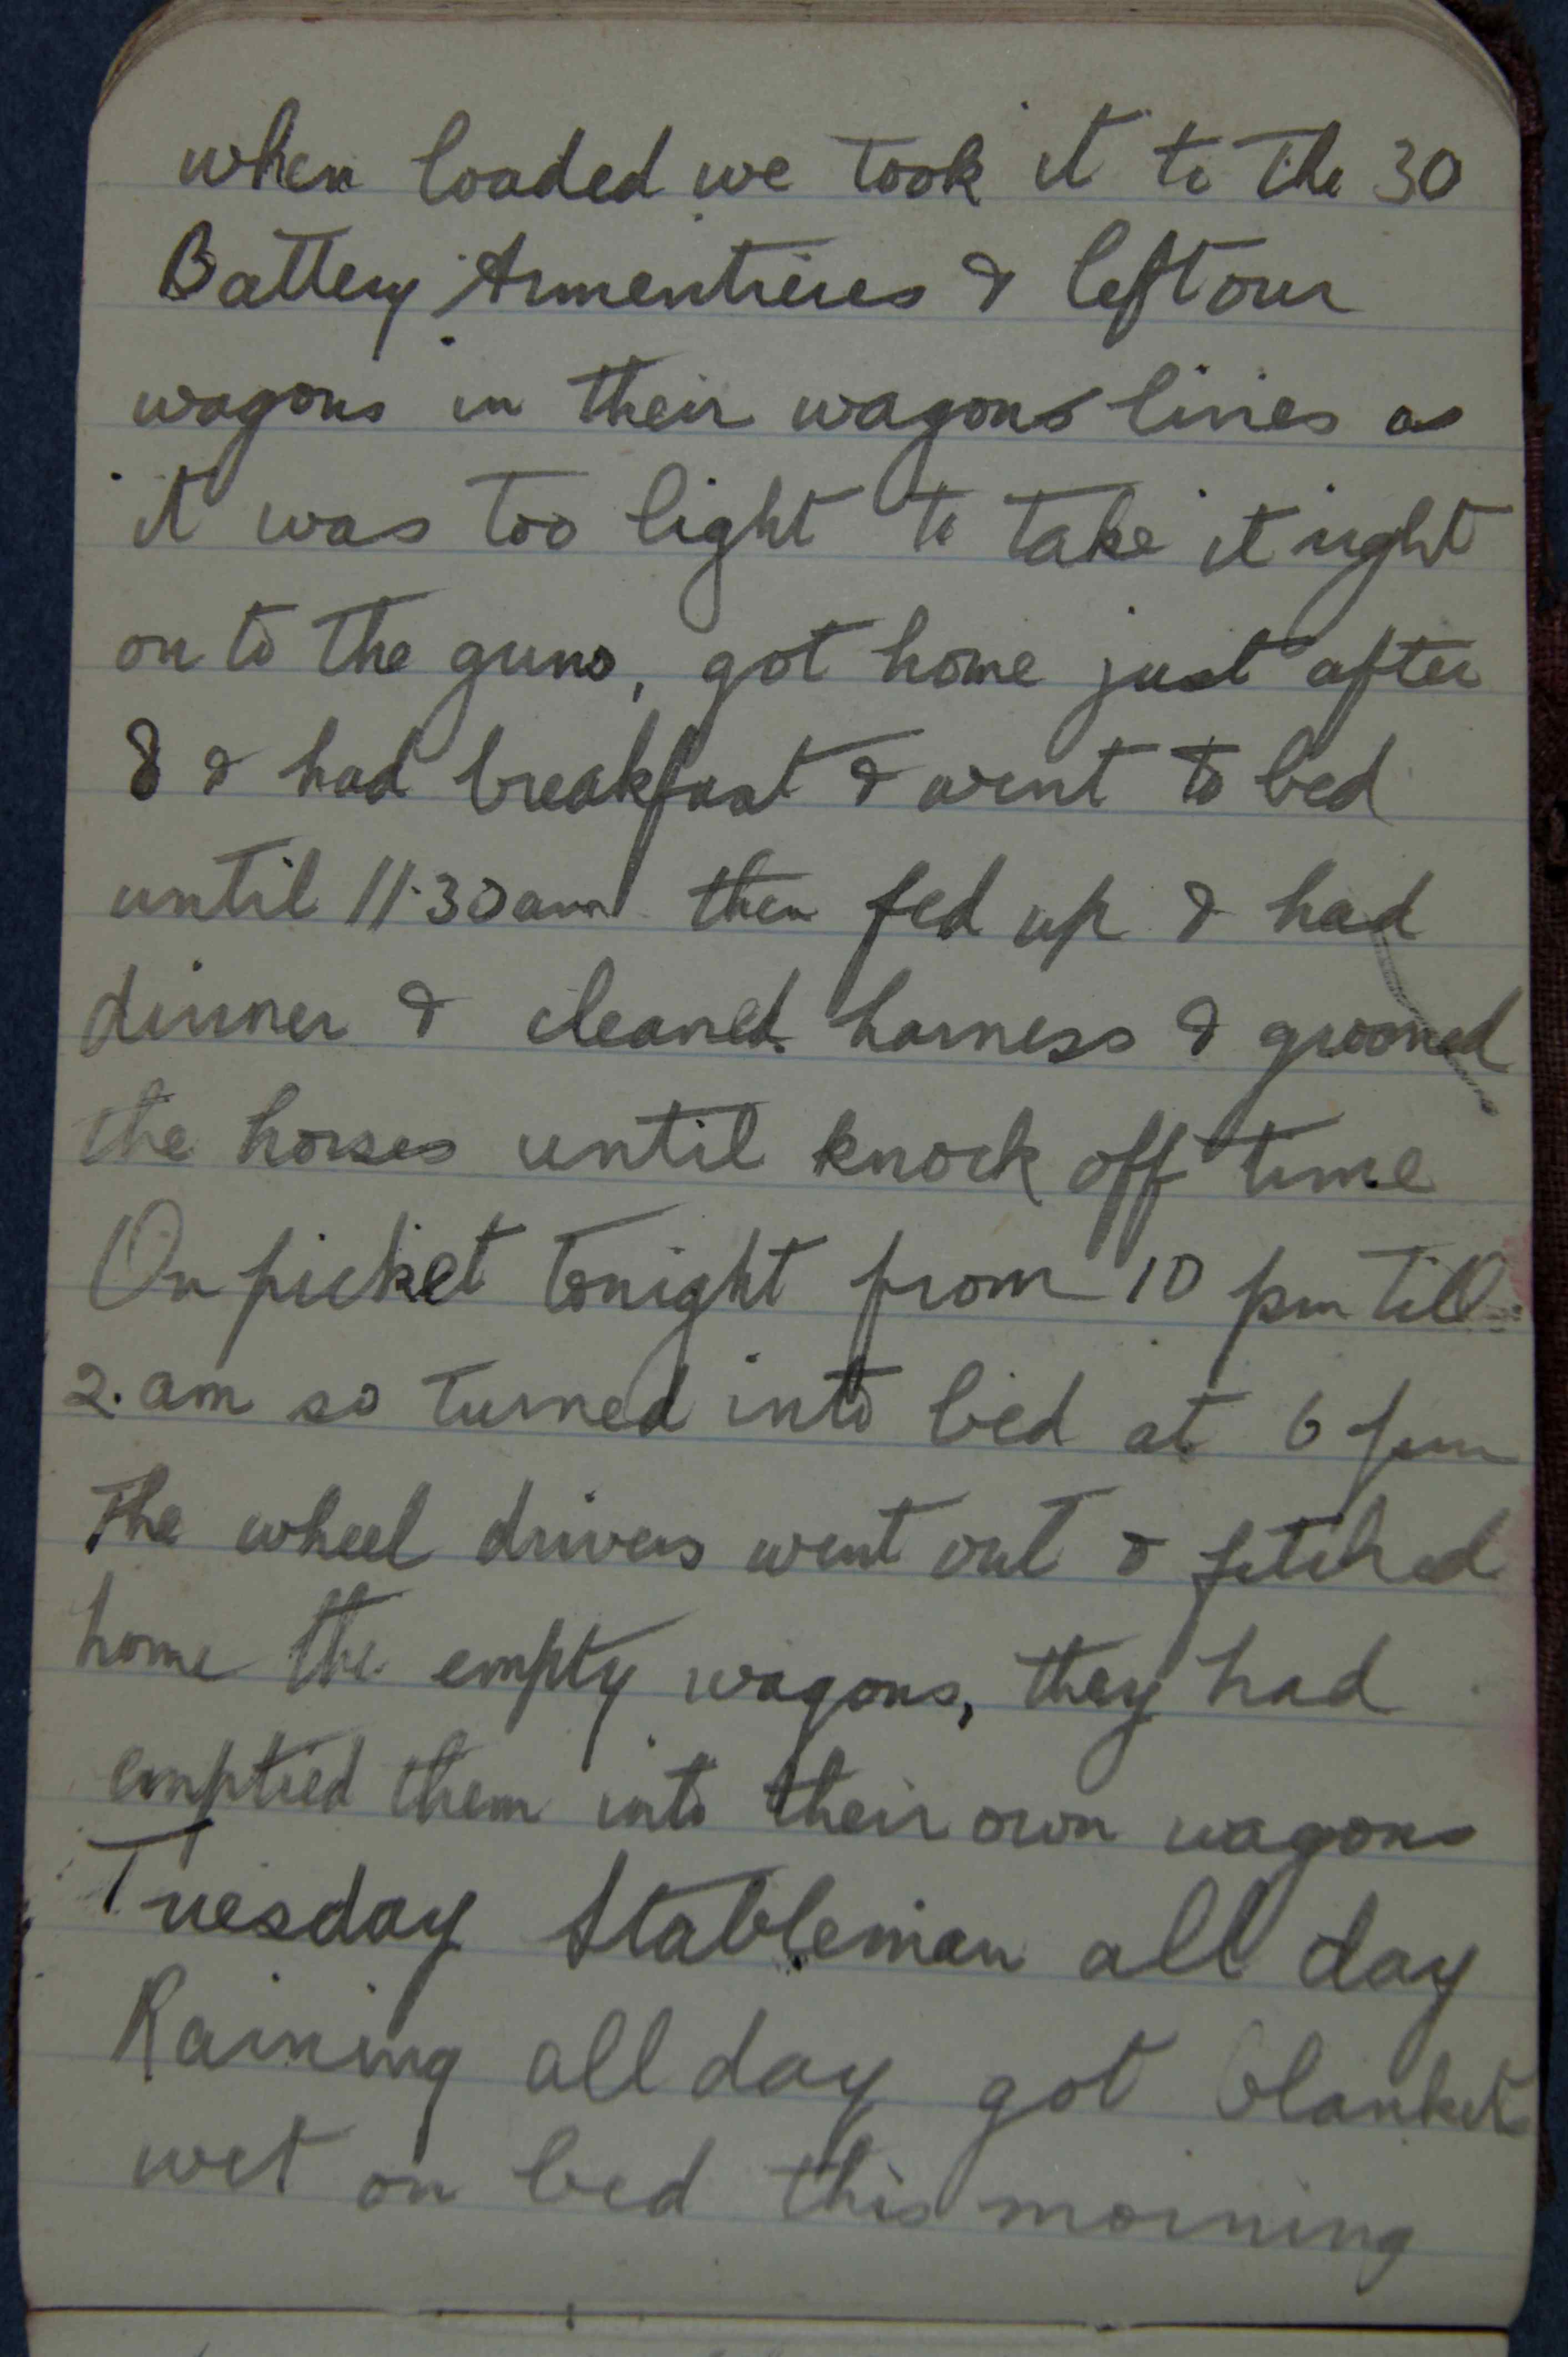 when loaded we took it to the 30
Battery Armentieres & left our
wagons in their wagons lines as
it was too light to take it right
on to the guns, got home just after
8 & had breakfast & went to bed
until 11.30 am then fed up & had
dinner & cleaned harness & groomed
the horses until knock off time
On picket tonight from 10 pm till
2. am so turned into bed at 6 pm
The wheel drivers went out & fetched
home the empty wagons, they had
emptied them into their own wagons
Tuesday Stableman all day
Raining all day got blankets
wet on bed this morning